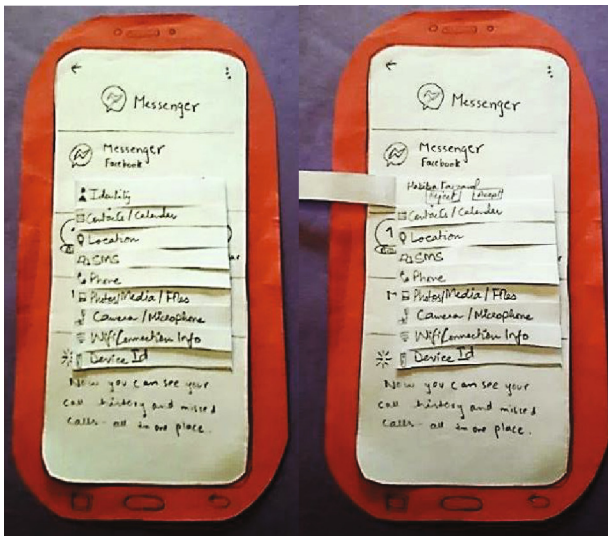 Messenger
Messenger
Facebook
Identity
Contacts / Calender
Location
SMS
Phone
Photos/Media / Files
Camera / Microphone
Wifi Connection Info
Device Id
Now you can see your
call history and missed
calls - all in one place.
Messenger
Messenger
Facebook
Habiba Farzand
Reject Accept
Contacts / Calender
Location
SMS
Phone
Photos/Media / Files
Camera / Microphone
Wifi Connection Info
Device Id
Now you can see your
call history and missed
calls - all in one place.